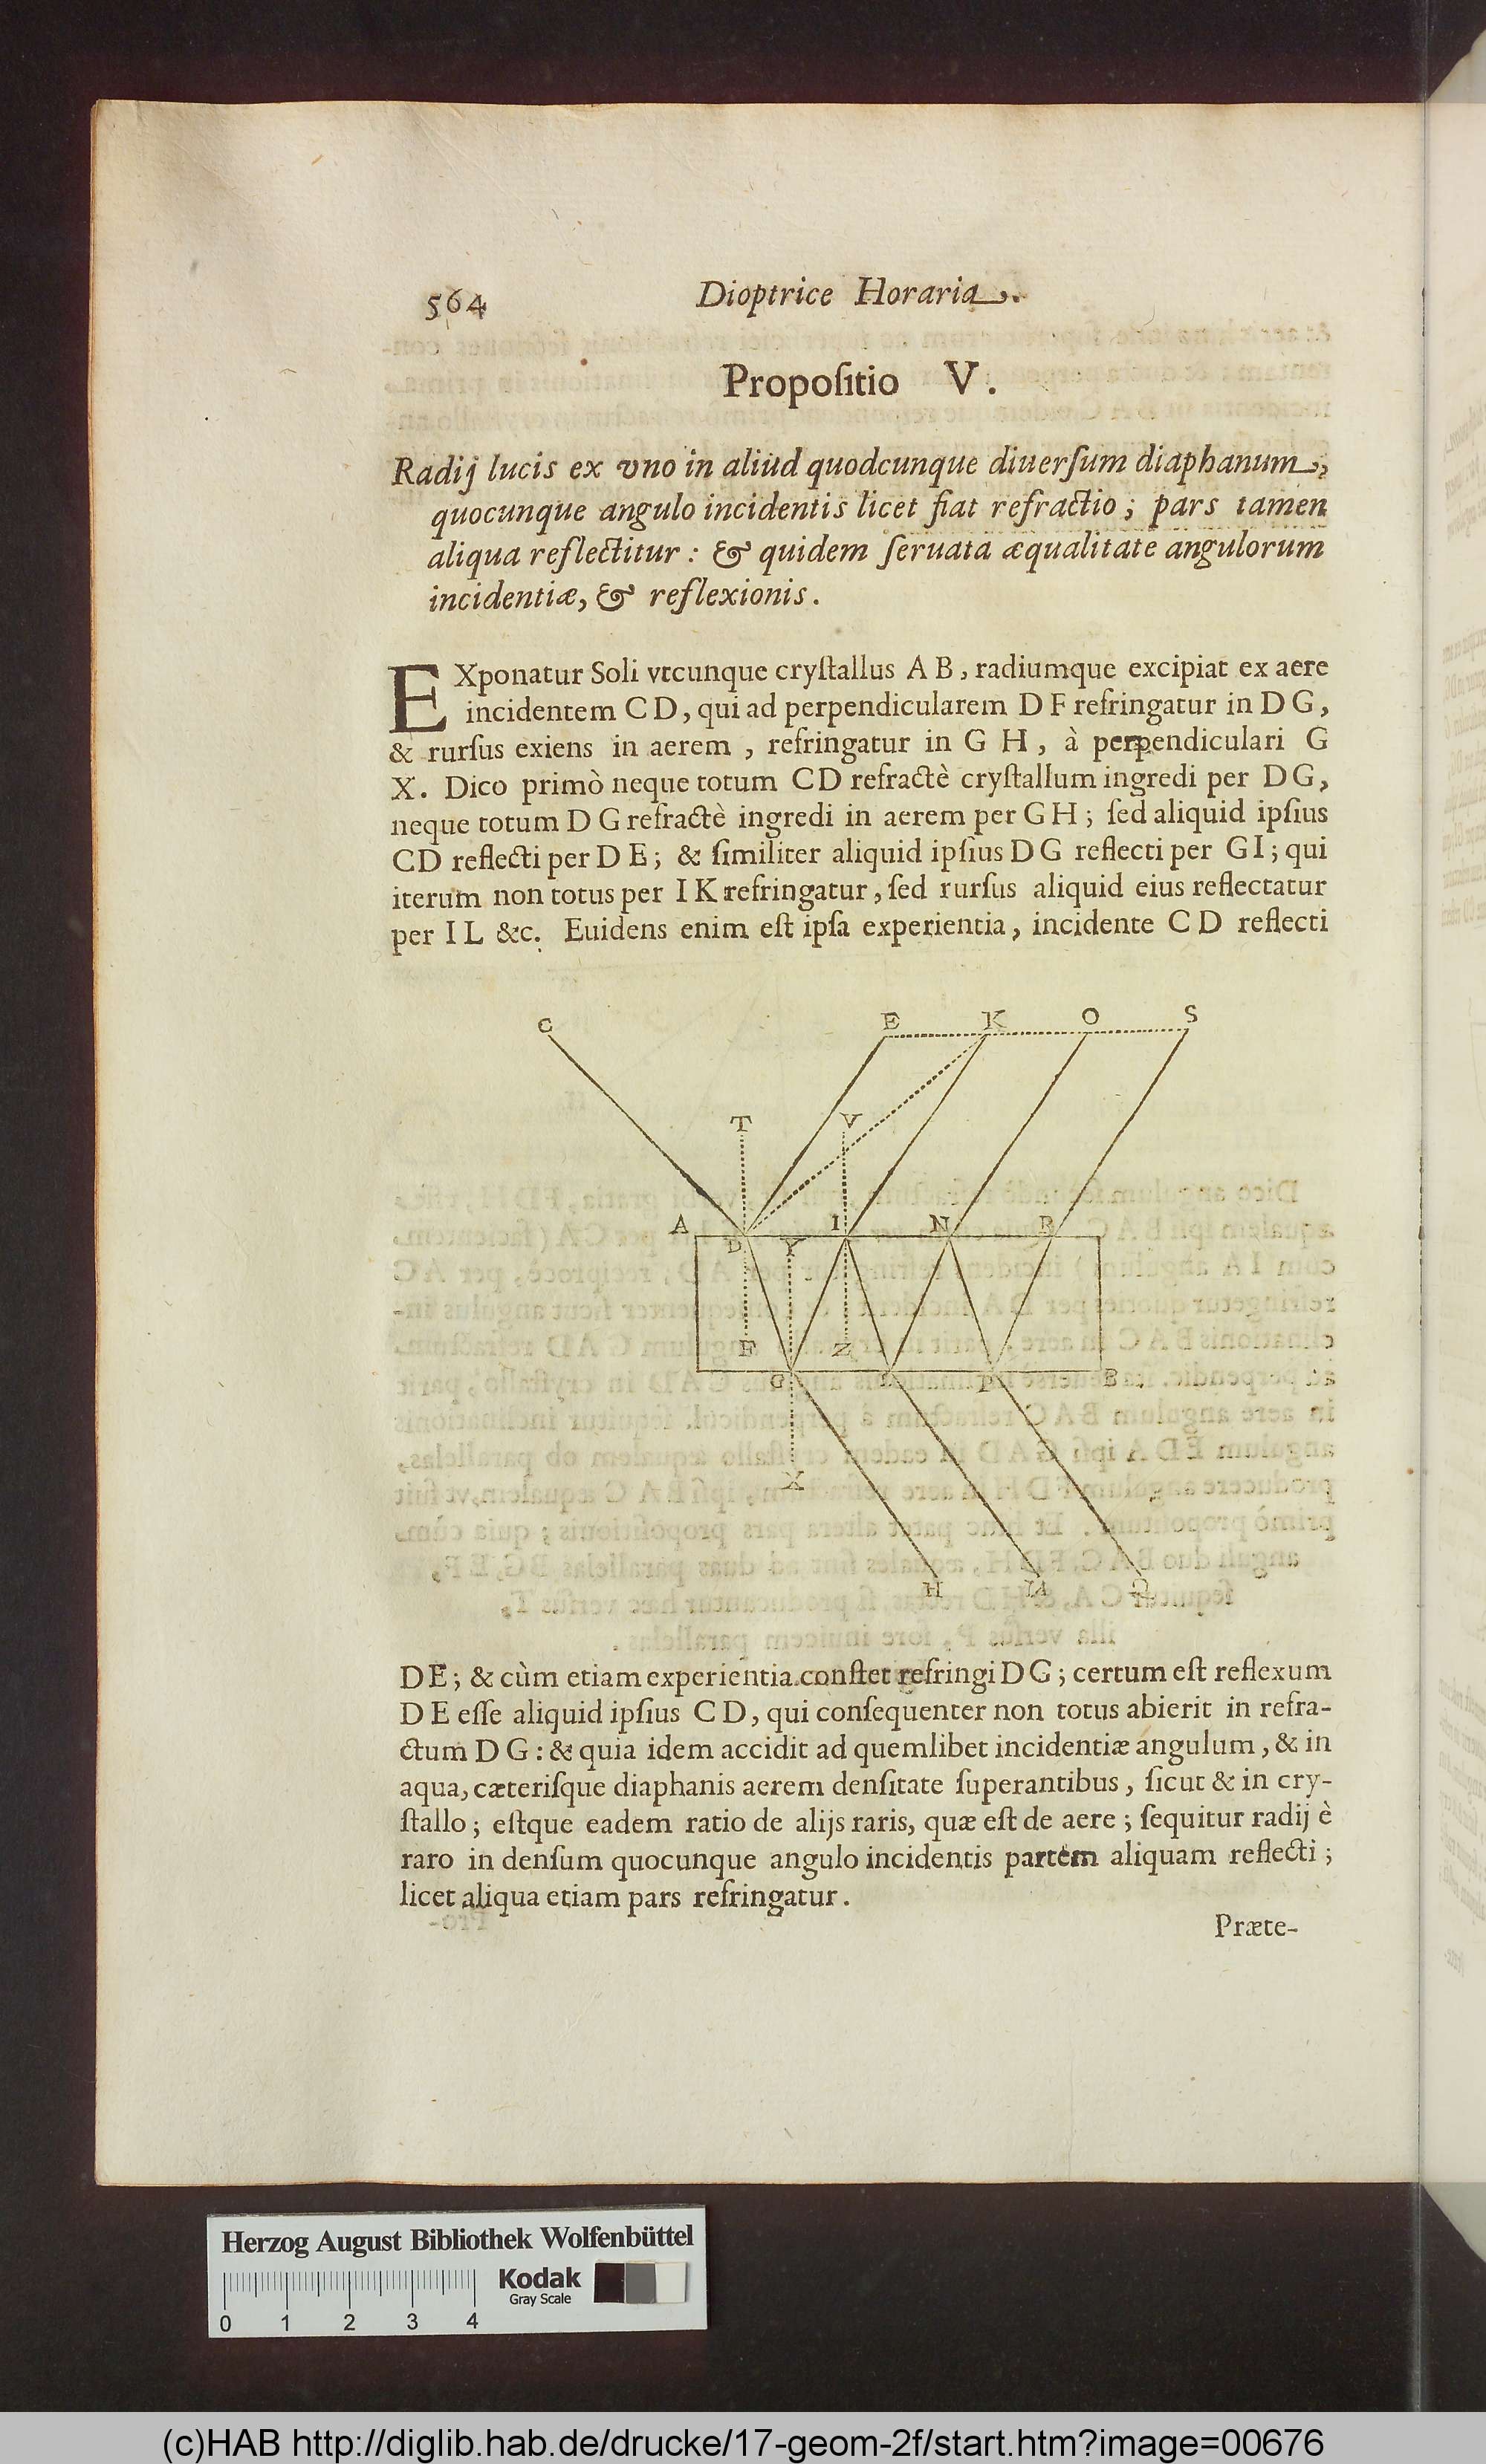 564
Dioptrice Horaria.
Propoſitio V.
Radij lucis ex vno in aliud quodcunque diuerſum diaphanum,
quocunque angulo incidentis licet fiat refractio; pars tamen
aliqua reflectitur: & quidem ſeruata æqualitate angulorum
incidentiæ, & reflexionis.
EXponatur Soli vtcunque cryſtallus A B, radiumque excipiat ex aere
incidentem C D, qui ad perpendicularem D F refringatur in D G,
& rurſus exiens in aerem, refringatur in G H, à perpendiculari G
X. Dico primò neque totum CD refractè cryſtallum ingredi per DG,
neque totum D G refractè ingredi in aerem per G H; ſed aliquid ipſius
CD reflecti per D E; & ſimiliter aliquid ipſius D G reflecti per GI; qui
iterum non totus per I K refringatur, ſed rurſus aliquid eius reflectatur
per I L &c. Euidens enim eſt ipſa experientia, incidente C D reflecti
C E K O S
T V
A D Y I N R
F Z
G L P B
X
H M Q
DE; & cùm etiam experientia conſtet refringi D G; certum eſt reflexum
D E eſſe aliquid ipſius C D, qui conſequenter non totus abierit in refra-
ctum D G: & quia idem accidit ad quemlibet incidentiæ angulum, & in
aqua, cæteriſque diaphanis aerem denſitate ſuperantibus, ſicut & in cry-
ſtallo; eſtque eadem ratio de alijs raris, quæ eſt de aere; ſequitur radij è
raro in denſum quocunque angulo incidentis partem aliquam reflecti;
licet aliqua etiam pars refringatur.
Præte-
Herzog August Bibliothek Wolfenbüttel
Kodak
Gray Scale
0 1 2 3 4
(c)HAB http://diglib.hab.de/drucke/17-geom-2f/start.htm?image=00676